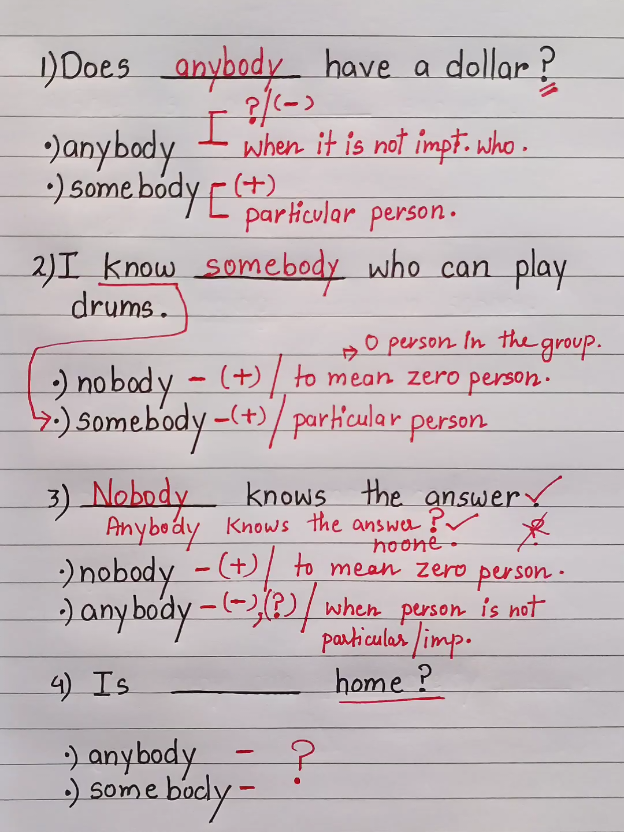 1) Does anybody have a dollar?
?/(-)
•) anybody when it is not impt. who.
•) somebody (+)
particular person.
2) I know somebody who can play
drums.
0 person in the group.
•) nobody - (+) / to mean zero person.
•) somebody - (+) / particular person
3) Nobody knows the answer ✓
Anybody knows the answer? ✓
noone.
•) nobody - (+) / to mean zero person.
•) anybody - (-), (?) / when person is not
particular/imp.
4) Is ______ home?
•) anybody - ?
•) somebody -